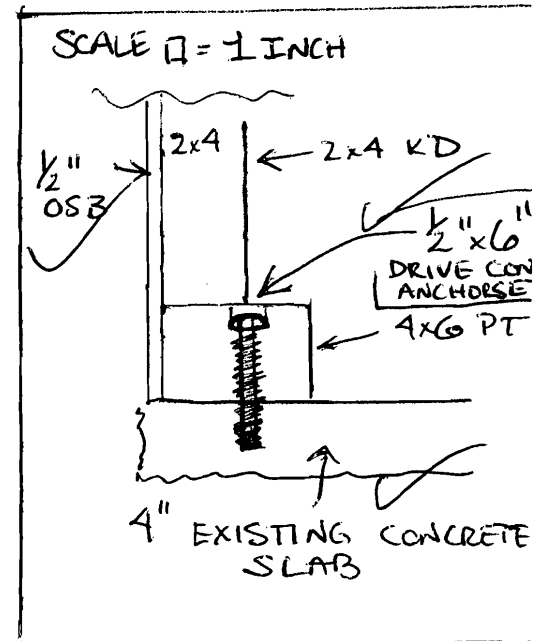 SCALE □ = 1 INCH
2x4
2x4 KD
1/2"
OSB
1/2"x6"
DRIVE CON
ANCHORSE
4x6 PT
4" EXISTING CONCRETE
SLAB